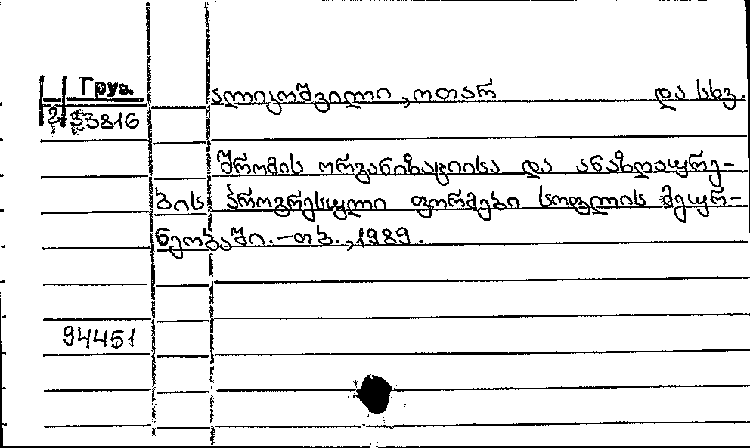 Груз.
ალიკოშვილი, ოთარ და სხვ.
2 33816
შრომის ორგანიზაციისა და ანაზღაურე-
ბის პროგრესული ფორმები სოფლის მეურ-
ნეობაში. — თბ., 1989.
94451